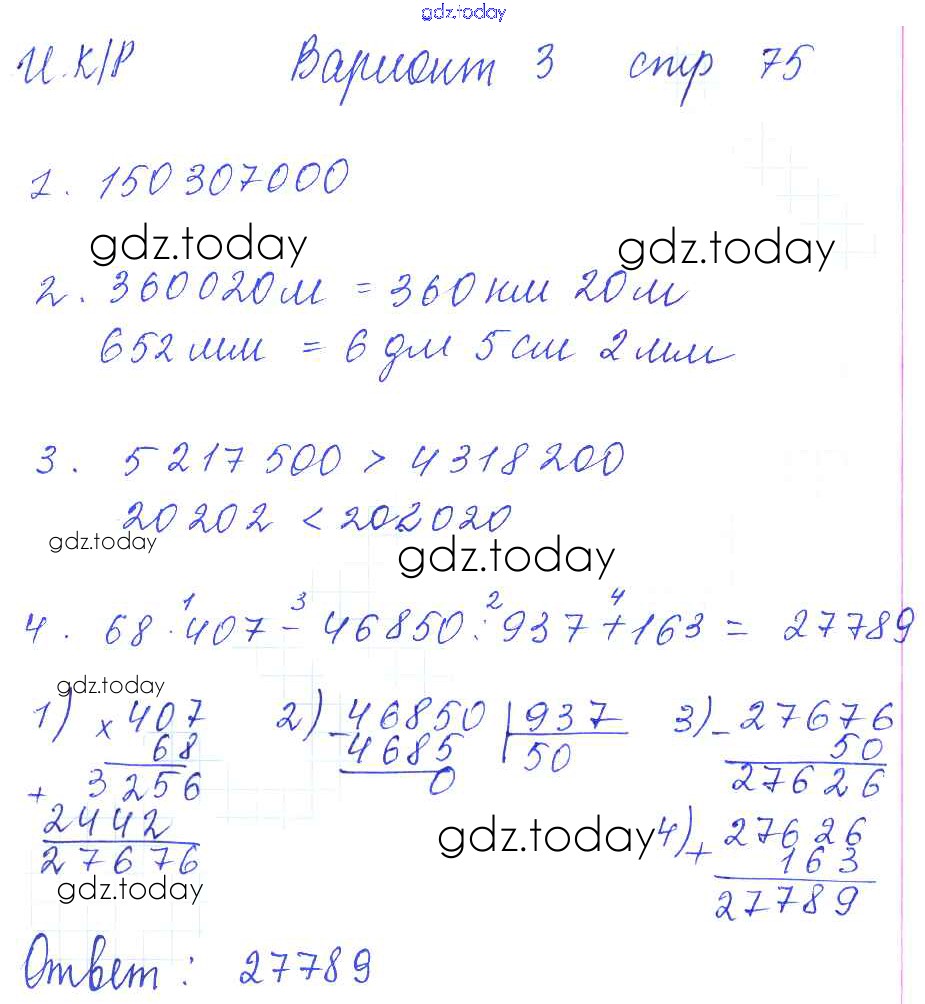 gdz.today
И. К/Р Вариант 3 стр 75
1. 150307000
gdz.today gdz.today
2. 360020м = 360 км 20м
652мм = 6 дм 5 см 2 мм
3. 5217500 > 4318200
20202 < 202020
gdz.today gdz.today
1 3 2 4
4. 68·407-46850:937+163 = 27789
gdz.today
1) × 407 2) - 46850 | 937 3) - 27676
68 4685 50 50
+ 3256 0 27626
2442 gdz.today 4) + 27626
27676 163
gdz.today 27789
Ответ: 27789